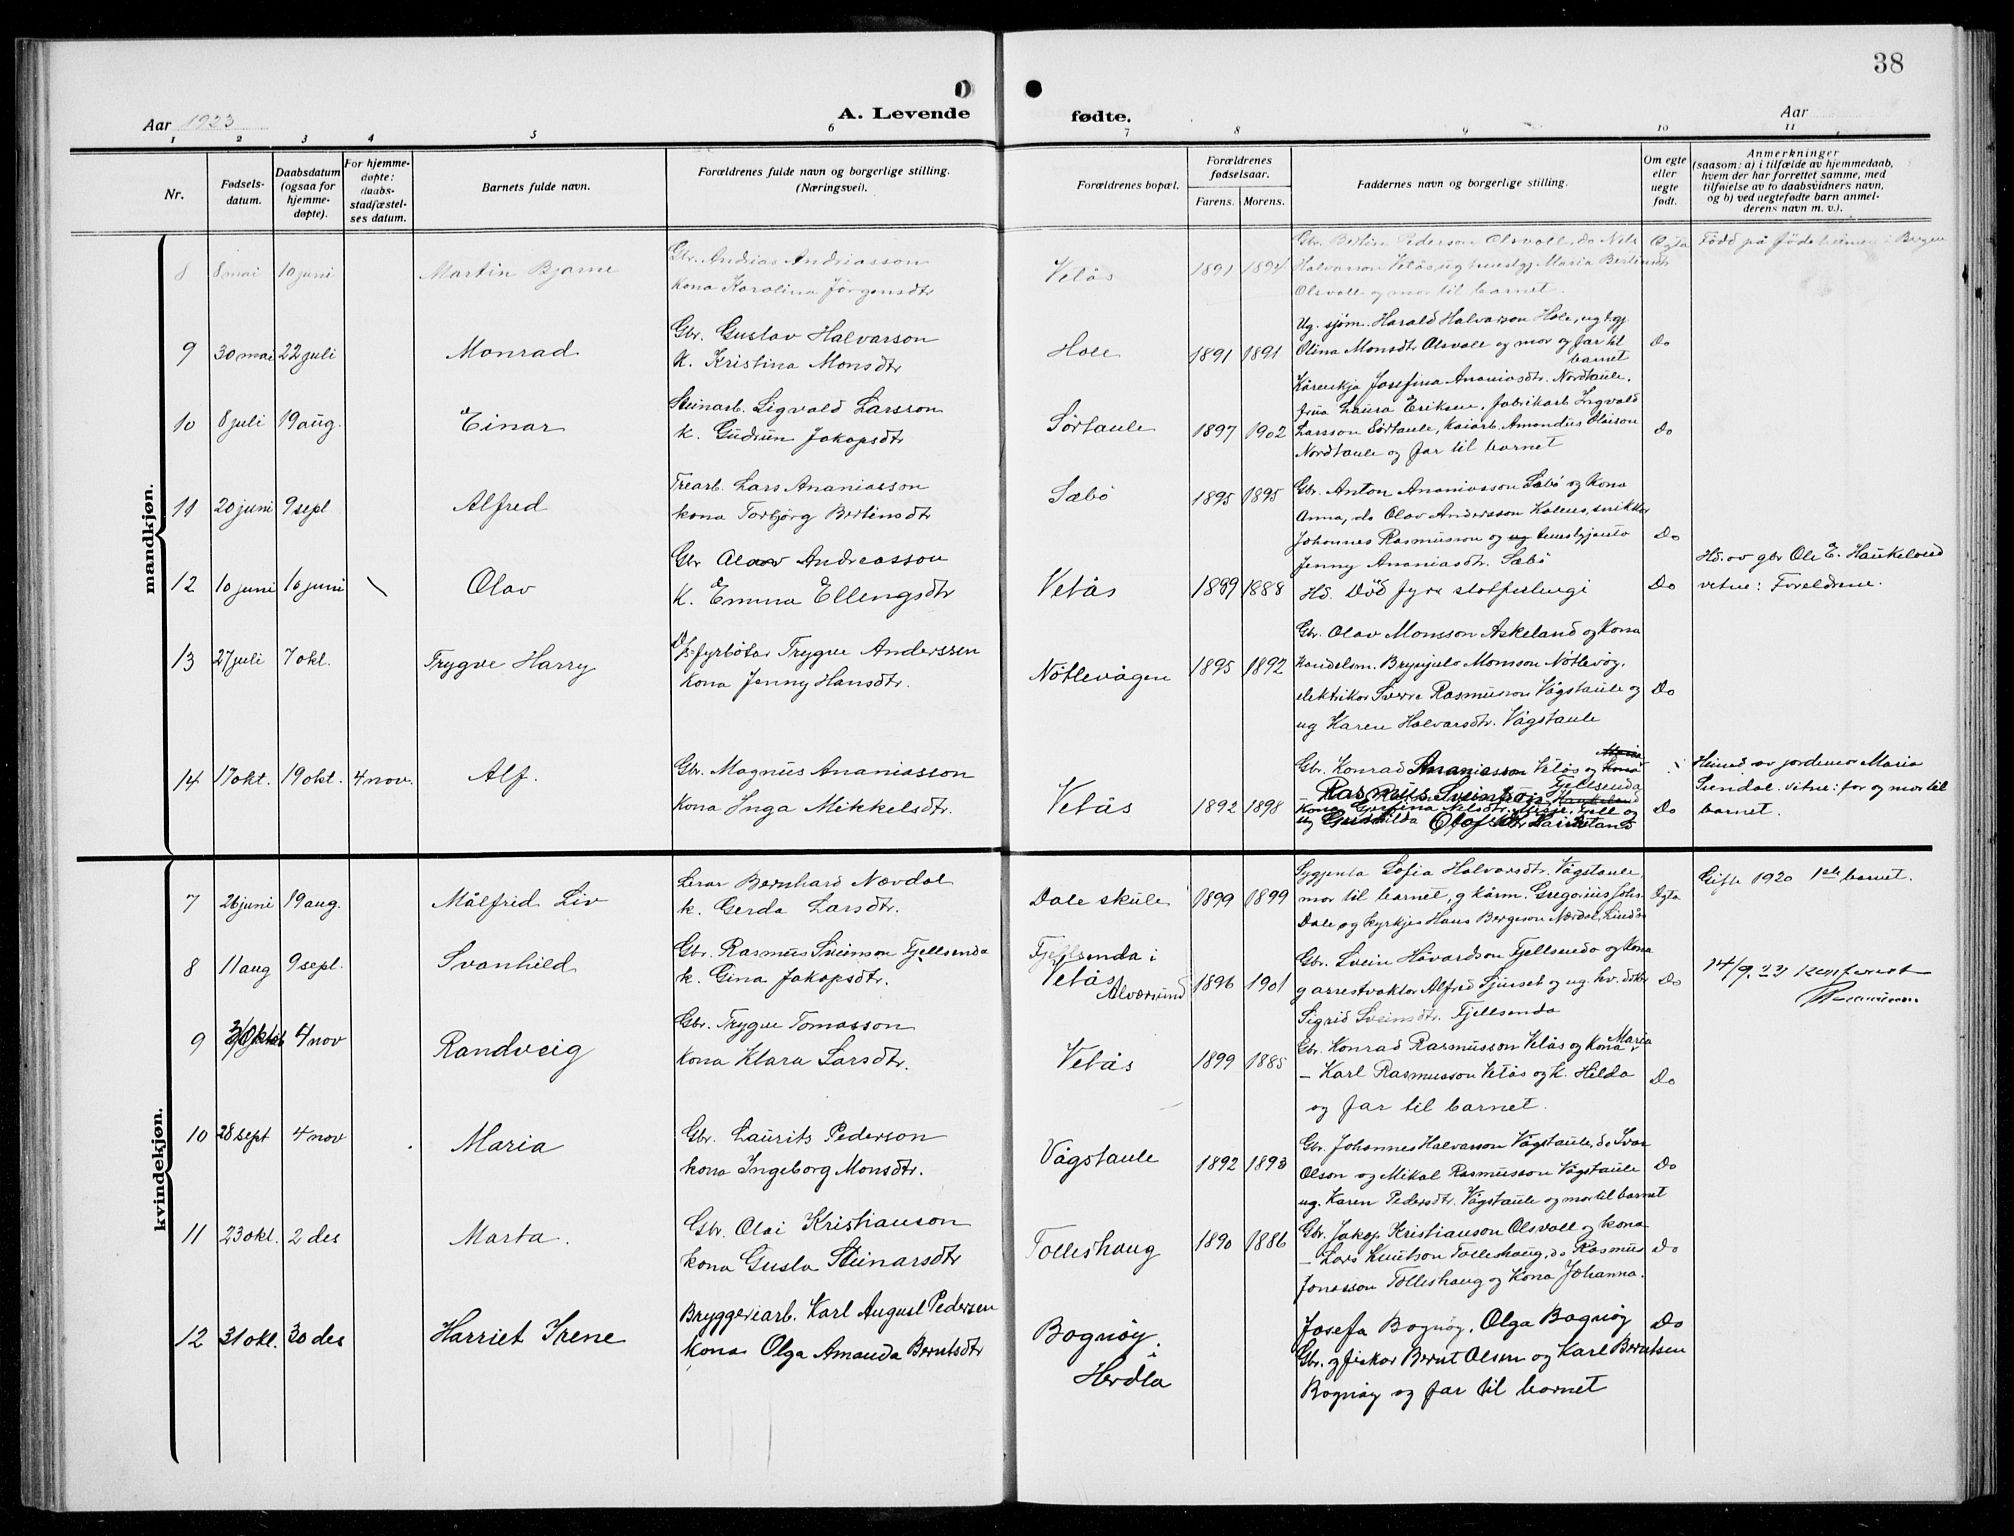 38
Aar 1923
A. Levende
fødte.
Aar
1 2 3 4 5 6 7 8 9 10 11
Nr.
Fødsels-
datum.
Daabsdatum
(ogsaa for
hjemme-
døpte).
For hjemme-
døpte:
daabs-
stadfæstel-
ses datum.
Barnets fulde navn.
Forældrenes fulde navn og borgerlige stilling.
(Næringsvei).
Forældrenes bopæl.
Forældrenes
fødselsaar.
Farens. Morens.
Faddernes navn og borgerlige stilling.
Om egte
eller
uegte
født.
Anmerkninger
(saasom: a) i tilfælde av hjemmedaab,
hvem der har forrettet samme, med
tilføielse av to daabsvidners navn,
og b) ved uegtefødte barn anmel-
derens navn m. v.).
mandkjøn.
8 8 mai 10 juni Martin Bjarne
Gbr. Andrias Andriasson
kona Karolina Jørgensdtr
Vetås 1891 1894
Gbr. Bertin Pederson Olsvoll, do Nils
Halvarson Vetås ug tenestgj. Maria Bertinsdtr
Olsvoll og mor til barnet.
Ogta
Född på fødeheimen i Bergen
9 30 mai 22 juli Monrad
Gbr. Gustav Halvarson
K. Kristina Monsdtr
Hole 1891 1891
Ug. sjøm. Harald Halvarson Hole, ug tgj.
Olina Monsdtr Olsvoll og mor og far til
barnet
Do
10 8 juli 19 aug. Einar
Steinarb. Sigvald Larsson
k. Gudrun Jakopsdtr
Sørtaule 1897 1902
Kårenkja Josefina Ananiasdtr. Nordtaule,
frua Laura Eriksen, fabrikarb Ingvald
Larsson Sørtaule, kaiarb. Amandus Olaison
Nordtaule og far til barnet
Do
11 20 juni 9 sept Alfred
Trearb. Lars Ananiasson
kona Torbjørg Bertinsdtr
Sæbö 1895 1895
Gbr. Anton Ananiasson Sæbö og kona
Anna, do Olav Andersson Kolens, snikkar
Johannes Rasmusson og ug tenestgjenta
Jenny Ananiasdtr. Sæbö
Do
12 10 juni 16 juni \ Olav
Gbr Olav Andreasson
K. Emma Ellengsdtr
Vetås 1899 1888
Hd. Död fyre stotfestingi
Do
Hd. av gbr Ole E. Haukeland
vitne: Foreldrene.
13 27 juli 7 okt. Trygve Harry
D/s-fyrbøtar Trygve Anderssen
Kona Jenny Hansdtr.
Nötlevågen 1895 1892
Gbr. Olav Monsson Askeland og kona
handelsm. Brynjulv Monsson Nötlevåg,
elektrikar Sverre Rasmusson Vågstaule og
ug Karen Halvarsdtr. Vågstaule
Do
14 17 okt. 19 okt. 4 nov. Alf.
Gbr. Magnus Ananiasson
Kona Inga Mikkelsdtr.
Vetås 1892 1898
Gbr. Konrad Ananiasson Vetås og
Rasmus Sveinson Fjellsenda
Do
Heimd av jordmor Maria
Sundal. vitne: far og mor til
barnet.
kvindekjøn.
7 26 juni 19 aug. Målfrid Liv
Lerar Bernhard Nævdal
k. Gerda Larsdtr.
Dale skule 1899 1899
Sygjenta Sofia Halvorsdtr. Vågstaule,
mor til barnet, g kårm. Gregorius Johs.
Dale og kyrkjes Hans Bergeson Nævdal, Lindås
Ogta
Gifte 1920 1ste barnet.
8 11 aug 9 sept. Svanhild
Gbr. Rasmus Sveinson Fjellsenda
k. Gina Jakopsdtr.
Fjellsenda i
Vetås
Alversund
1896 1901
Gbr. Svein Håvardson Fjellsenda og kona
g arrestvaktar Alfred Sjurset og ug. hv. dotter
Sigrid Sveinsdtr. Fjellsenda
Do
14/9 23
9 3/ Oktob 4 nov Randveig
Gbr. Trygve Tomasson
kona Klara Larsdtr.
Vetås 1899 1885
Gbr. Konrad Rasmusson Vetås og kona Maria
— Karl Rasmusson Vetås og k. Hilda
og far til barnet.
Do
10 28 sept 4 nov Maria
Gbr. Laurits Pederson
kona Ingeborg Monsdtr.
Vågstaule 1892 1893
Gbr. Johannes Halvarson Vågstaule, do Ivar
Olson og Mikal Rasmusson Vågstaule
ug. Karen Pedersdtr. Vågstaule og mor til barnet
Do
11 23 okt. 2 des Marta.
Gbr. Olai Kristianson
kona Gusta Steinarsdtr
Tolleshaug 1890 1886
Gbr. Jakop Kristianson Olsvoll og kona
— Lars Knutson Tolleshaug, do Rasmus
Jonasson Tolleshaug og kona Johanna.
Do
12 31 okt. 30 des Harriet Irene
Bryggeriarb. Karl August Pedersen
kona Olga Amanda Berntsdtr
Bognöy
i
Herdla
Josefa Bognöy, Olga Bognöy
Gbr. g fiskar Bernt Olsen og Karl Berntsen
Bognöy og far til barnet
Do